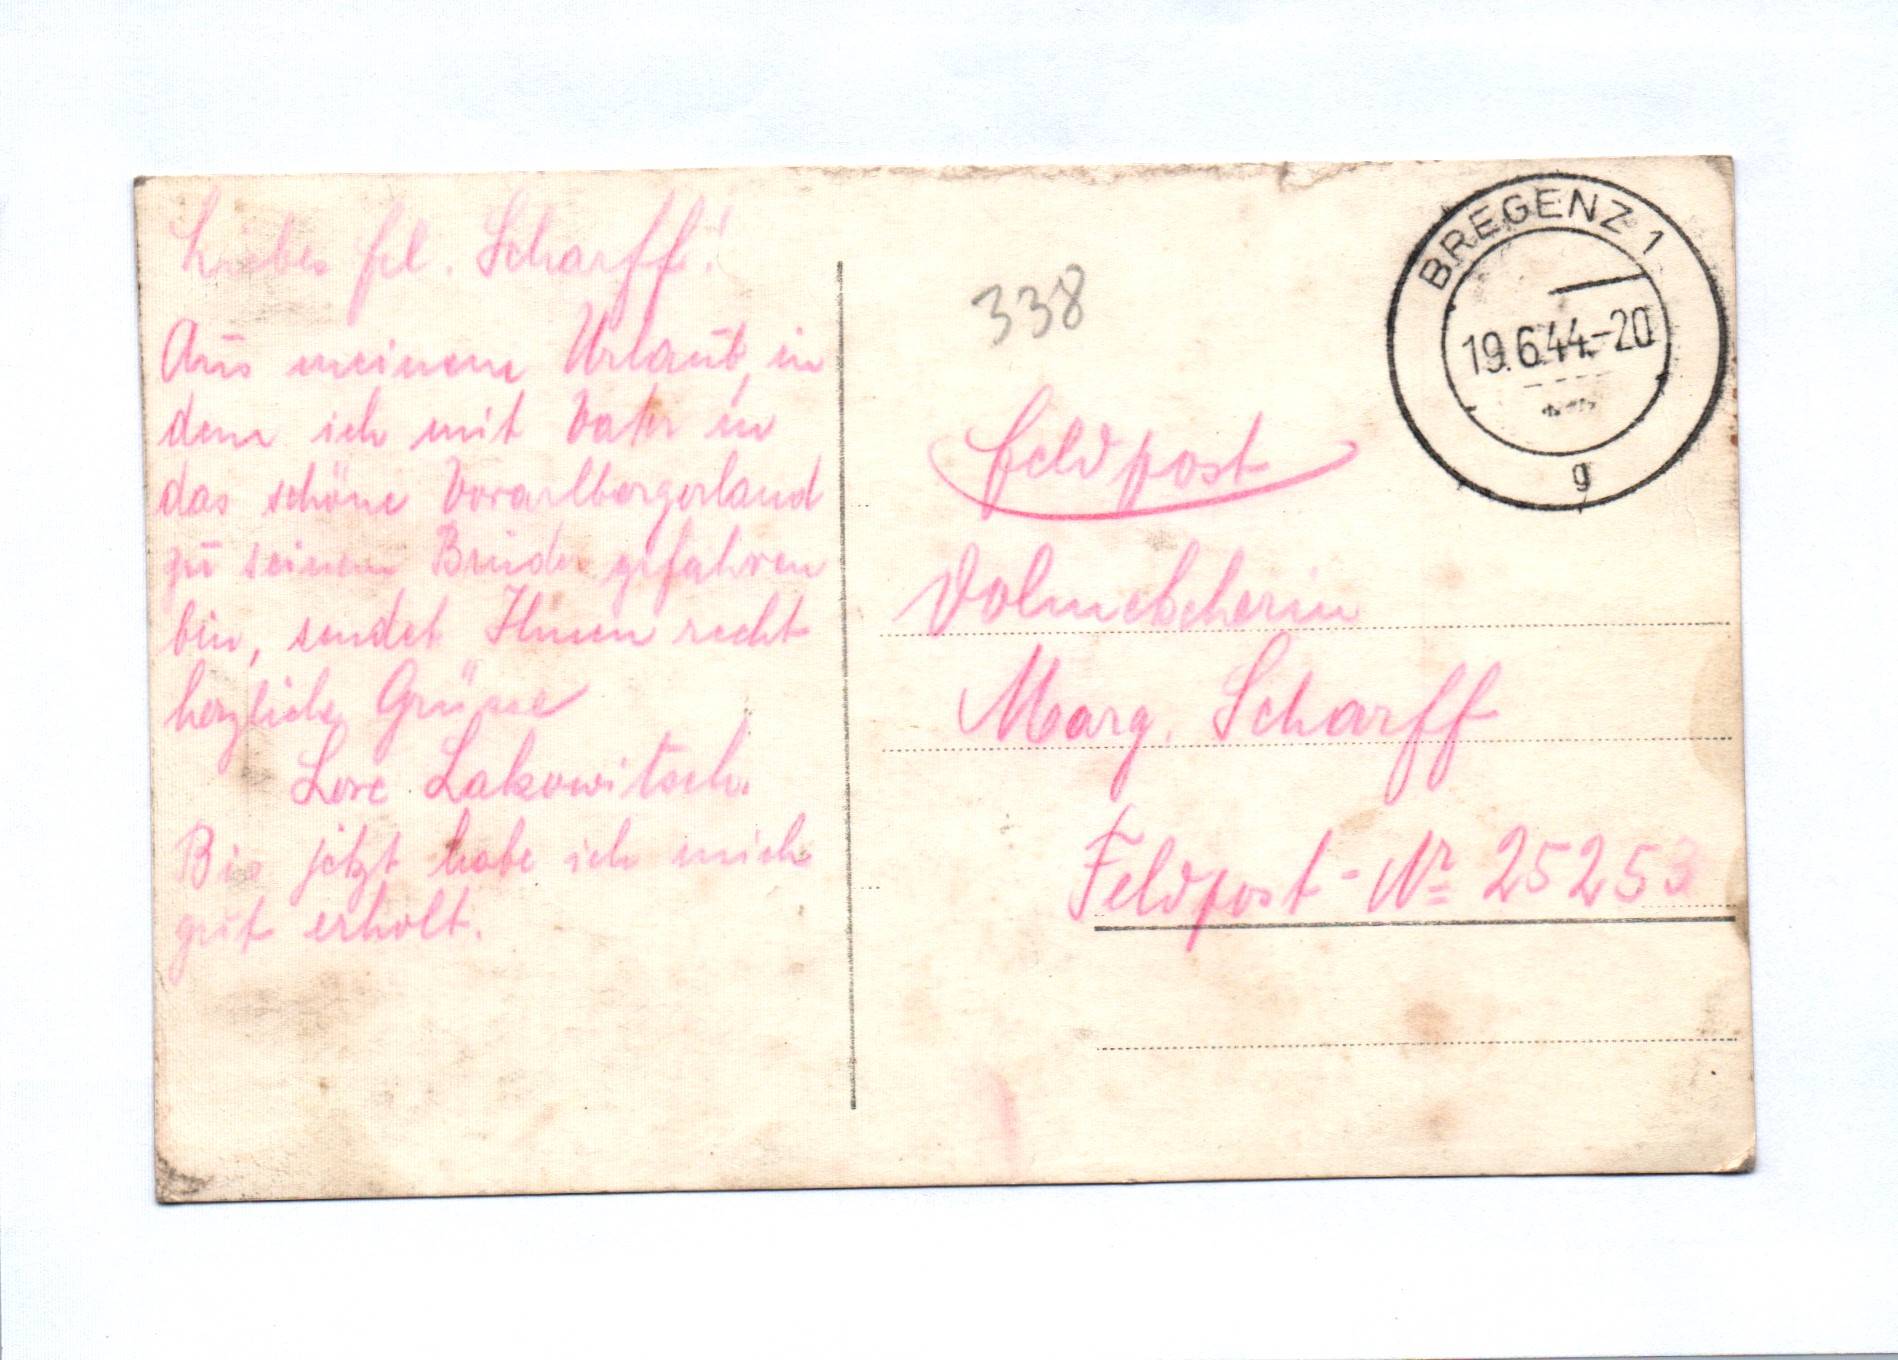 Liebes Frl. Scharff!
Aus meinem Urlaub, in
dem ich mit Vater in
das schöne Vorarlbergerland
zu seinem Bruder gefahren
bin, sendet Ihnen recht
herzliche Grüsse
Lore Lakowitsch.
Bis jetzt habe ich mich
gut erholt.
338
BREGENZ 1
19.6.44.-20
g
Feldpost
Dolmetscherin
Marg. Scharff
Feldpost-Nr 25253